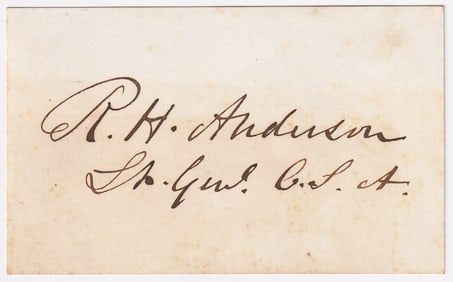 R. H. Anderson
Lt. Genl. C. S. A.